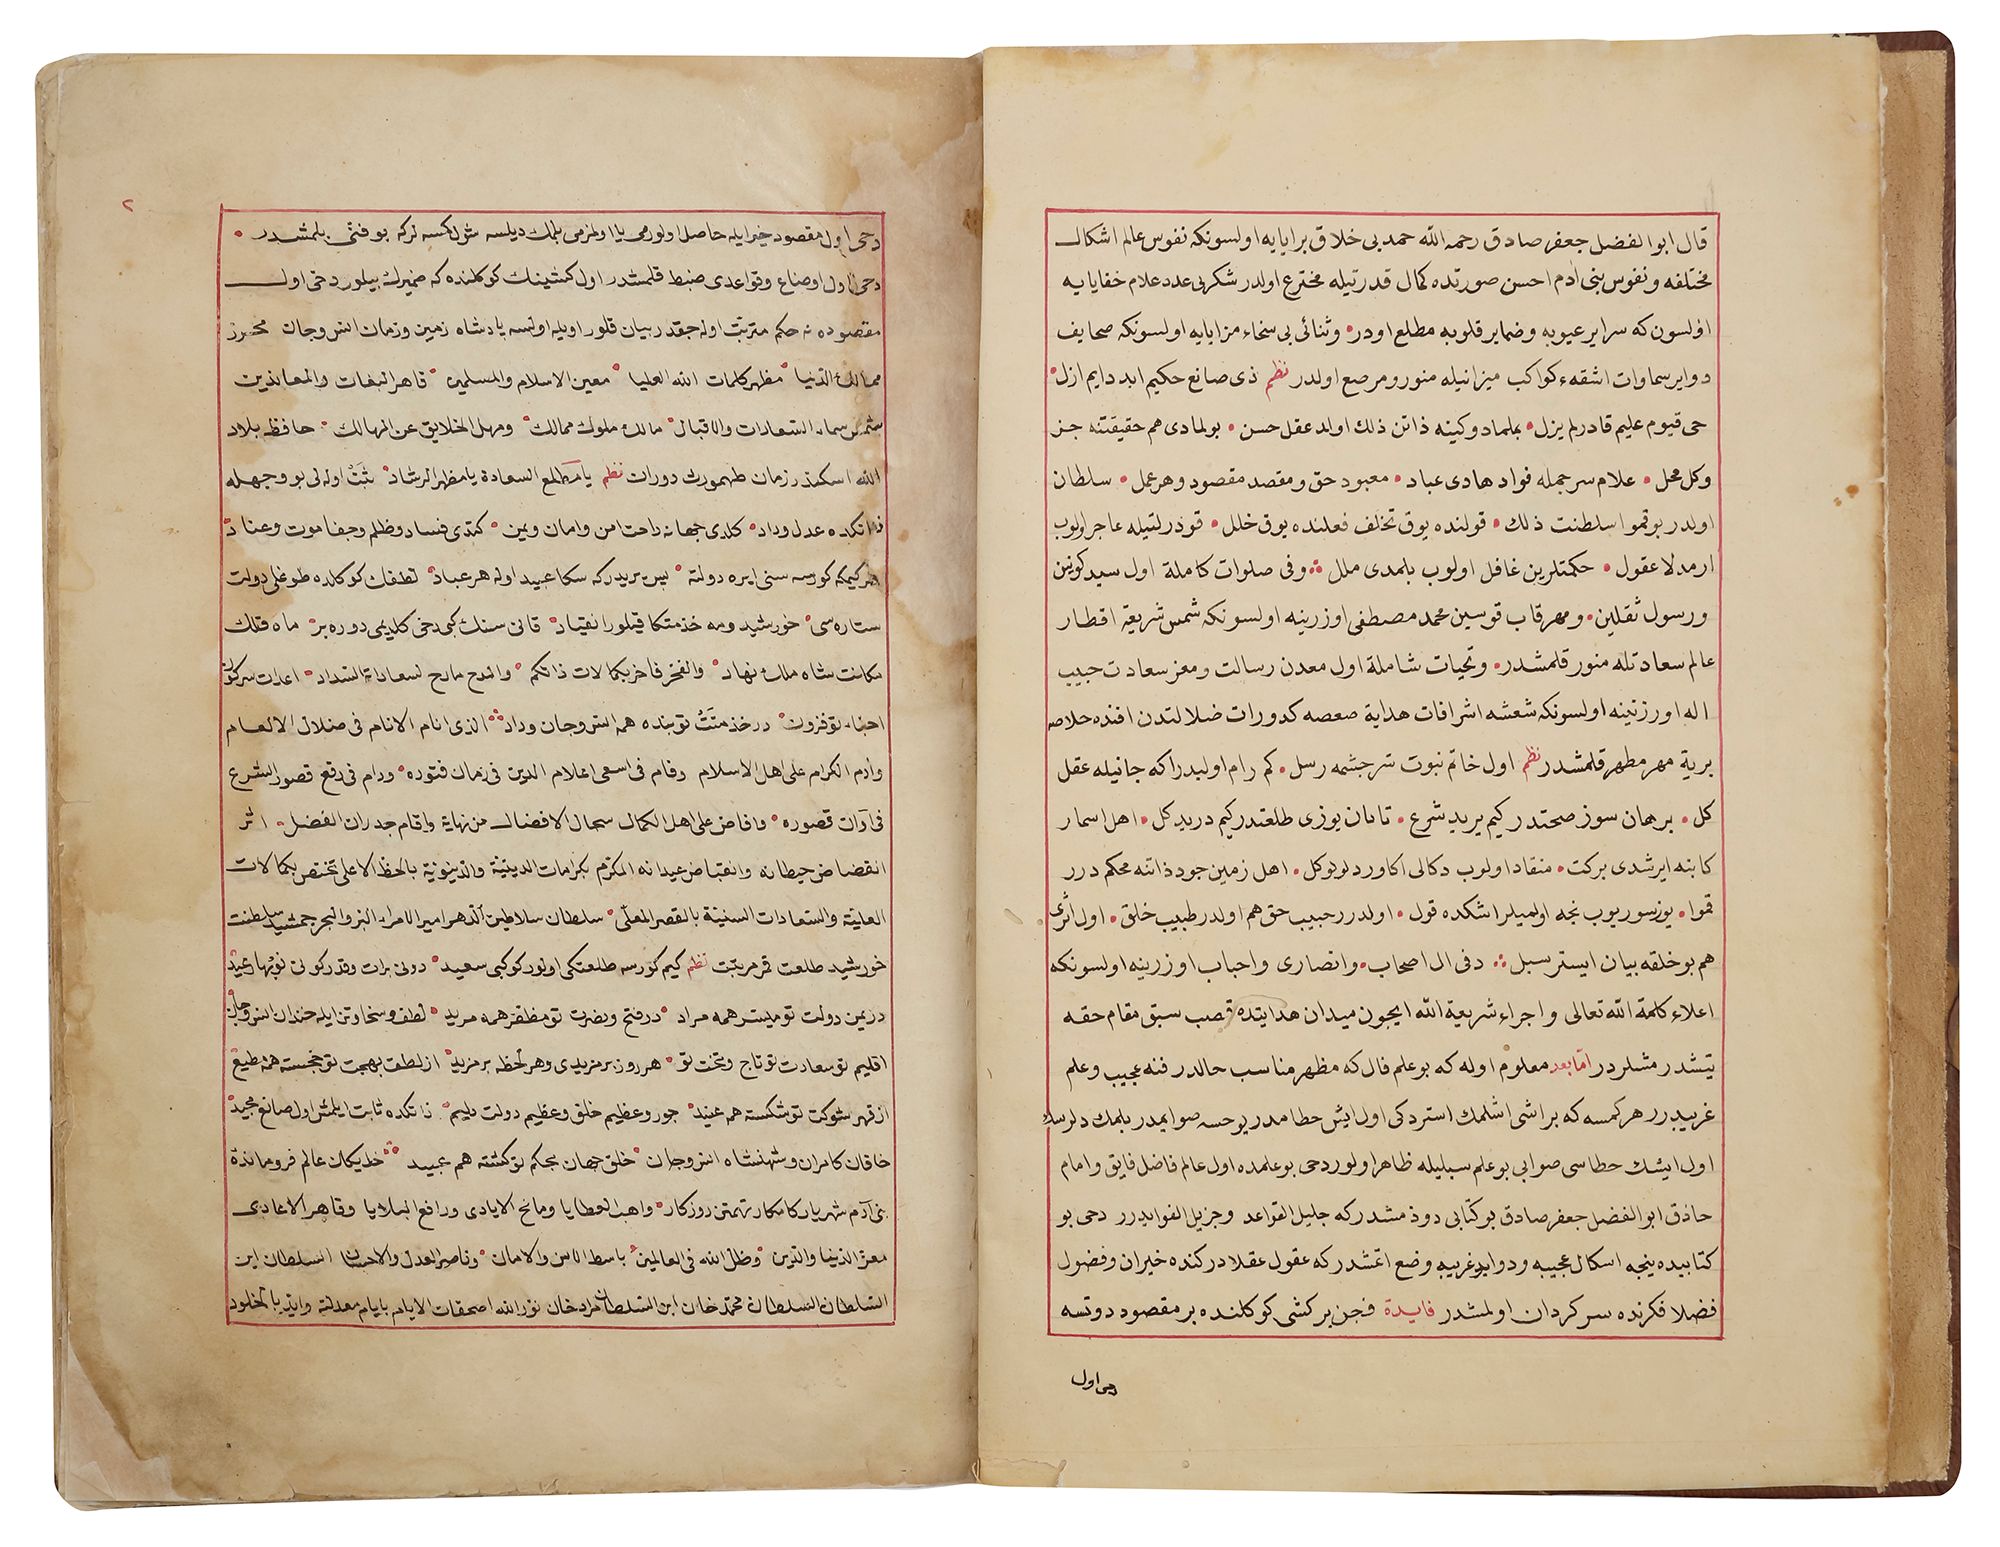 قال ابوالفضل جعفر صادق رحمه الله حمد بی خلاق برایایه اولسونکه نفوس عالم اشکال
مختلفه و نفوس بنی ادم احسن صورتده کمال قدرتیله مخترع اولدر شکر بی عدد علام خفایایه
اولسون که سرایر عیوبه وضمایر قلوبه مطلع اودر وثنائی بی سخاء مزایایه اولسونکه صحایف
دوایر سماوات اشقهء کواکب میزانیله منور ومرصع اولدر نظم ذی صانع حکیم ابد دایم ازل
حی قیوم علیم قادر لم یزل بلماد وکینه ذاتن ذلك اولد عقل حسن بولمادی هم حقیقتنه جز
وکل محل علام سر جمله فواد هادی عباد معبود حق ومقصد مقصود وهر عمل سلطان
اولدر بوقموا سلطنت ذلك قولنده یوق تخلف فعلنده یوق خلل قودرلتیله عاجر اولوب
ارمدلا عقول حکمتلرین غافل اولوب بلمدی ملل وفی صلوات کاملة اول سید کونین
ورسول ثقلین ومهر قاب قوسین محمد مصطفی اوزرینه اولسونکه شمس شریعة اقطار
عالم سعادتله منور قلمشدر وتحیات شاملة اول معدن رسالت ومعز سعادت حبیب
اله اوزرتینه اولسونکه شعشه اشراقات هدایة صعصه کدورات ضلالتدن افنده خلاصه
بریة مهر مطهر قلمشدر نظم اول خاتم نبوت سرجشمه رسل کم رام اولیدراکه جانیله عقل
کل برهان سوز صحتدر کیم یرید شرع تابان یوزی طلعتدر کیم درید کل اهل اسمار
کابنه ایرشدی برکت منقاد اولوب دکالی اکاورد لوبوکل اهل زمین جود ذاتنه محکم درر
قموا یوزسوریوب نجه اولمیلر اشکده قول اولدرر حبیب حق هم اولدر طبیب خلق اول اثری
هم بو خلقه بیان ایستر سبل دفی ال اصحاب وانصاری و احباب اوزرینه اولسونکه
اعلاء کلمة الله تعالی و اجراء شریعة الله ایجون میدان هدایتده قصب سبق مقام حقه
یتشدر مشلردر اما بعد معلوم اوله که بو علم فال که مظهر مناسب حالدر فنه عجیب وعلم
غریبدرر هر کمسه که بر اشی اشلمك استردکی اول ایش حطا مدر یوحسه صوابمدر بلمك دلرسك
اول ایشك حطاسی صوابی بو علم سبلیله ظاهر اولور دحی بو علمده اول عالم فاضل فایق وامام
حاذق ابوالفضل جعفر صادق بو کتابی دوذ مشدر که جلیل القواعد وجزیل الفوایدرر دحی بو
کتابیده ینجه اسکال عجیبه و دوایر غریبه وضع اتمشدر که عقول عقلا درکنده خیران وفضول
فضلا فکرنده سرکردان اولمشدر فایدة فجن بر کشی کوکلنده بر مقصود دوتسه
دحی اول
۲
دحی اول مقصود خیرایله حاصل اولورمی یا اولمزمی بلمك دیلسه شول کسه لرکه بو فنی بلمشدر
دحی اول اوضاع وقواعدی ضبط قلمشدر اول کشینك کوکلنده که ضمیرك بیلور دخی اول
مقصوده نه حکم مترتب اوله جقدر بیان قلور اویله اولسه پادشاه زمین وزمان انس وجان محرز
ممالك الدنیا مظهر کلمات الله العلیا معین الاسلام والمسلمین قاهر البغات والمعاندین
شمس سماء السعادات والاقبال مالك ملوك ممالك ومهل الخلایق عن المهالك حافظ بلاد
الله اسکندر زمان طهمورث دوران نظم یا مطلع السعادة یا مظهر الرشاد ثبت اوله لی بو وجهله
ذاتکده عدل وداد کلدی جهانه راحت امن وامان ویمن کتدی فساد وظلم وجفا موت وعناد
هر کیمکه کورسه سنی ایره دولته پس یریدرکه سکا عبید اوله هر عباد لطفك کوکلده طوغلی دولت
ستاره سی خورشید ومه خذمتکا قیلور انقیاد قانی سنك کبی دخی کلدیمی دوره بر ماه فلك
مکانت شاه ملك نهاد والفخر فاخر بکمالات ذاتکم والمدح مادح لسعادة السداد اعدات سرکون
احباء تو فزون درخدمتت تو بنده همه انس وجان وداد الذی انام الانام فی ضلال الانعام
وادم الکرام علی اهل الاسلام وقام فی اسعی اعلام الدین فی زمان فتوره ودام فی رفع قصور الشرع
فی آوان قصوره وافاض علی اهل الکمال سجال الافضال من نهایة واقام جدران الفضل اثر
انقضاض حیطانه وانقباض عیدانه المکرم بکرامات الدینیة والدنیویة بالحظ الاعلی تختص بکمالات
العلیة والسعادات السنیة بالقصر المعلی سلطان سلاطین الدهر امیر الامراء البر والبحر جمشید سلطنت
خورشید طلعت قمر مرتبت نظم کیم کورسه طلعتکی اولور کوکبی سعید دونی برات وقدر کونی نوبهار عید
در یمن دولت تو میسر همه مراد در فتح ونصرت تو مظفر همه مرید لطف وسخاوتن ایله خندان انس وجان
اقلیم تو سعادت تو تاج وتخت تو هر روز بر مزیدی وهر لحظه بر مزید از لطف بهجت تو خجسته همه مطیع
از قهر شوکت تو شکسته هم عنید جور وعظیم خلق وعظیم دولت دلیم ذاتکده ثابت ایلمش اول صانع مجید
خاقان کامران وشهنشاه انس وجان خلق جهان بحکم تو کشته هم عبید خدیکان عالم فرومانده
بنی آدم شهریار کامکار تهمتن روزکار واهب العطایا ومانح الایادی ورافع البلایا وقاهر الاعادی
معز الدنیا والدین وظل الله فی العالمین باسط الامن والامان وناصر العدل والاحسان السلطان ابن
السلطان السلطان محمد خان ابن السلطان مراد خان نور الله اصحفات الایام بایام معدلته وایتد بالخلود